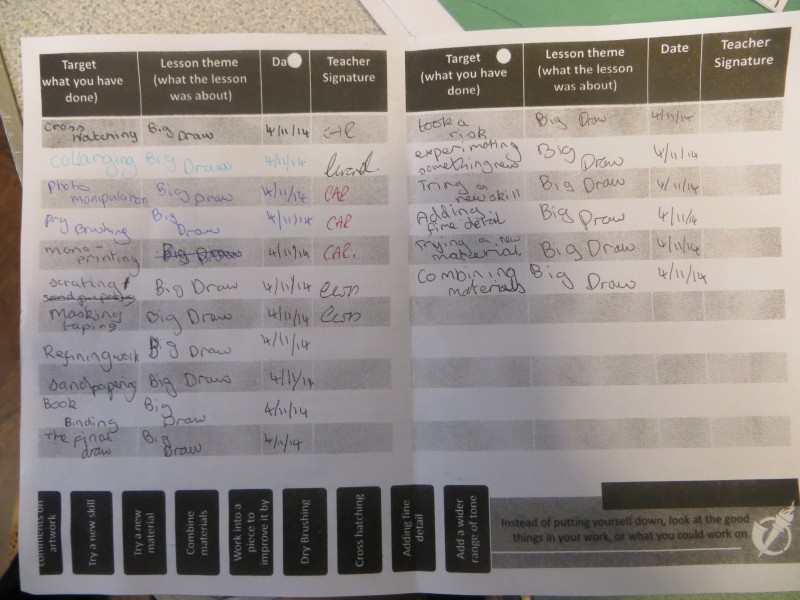 Target
(what you have
done)
Lesson theme
(what the lesson
was about)
Teacher
Signature
Cross
Hatching Big Draw 4/11/14 CAL
Collarging Big Draw 4/11/14
Photo
manipulation Big Draw 4/11/14 CAL
Dry Brushing Big Draw 4/11/14 CAL
mono-
printing Big Draw 4/11/14 CAL.
Big Draw 4/11/14
Masking
taping Big Draw 4/11/14
Refining work Big Draw 4/11/14
Sandpapering Big Draw 4/11/14
Book
Binding Big Draw 4/11/14
The final
draw Big Draw 4/11/14
Target
(what you have
done)
Lesson theme
(what the lesson
was about)
Date
Teacher
Signature
took a
risk Big Draw 4/11/14
experimating
something new Big Draw 4/11/14
Tring a
new skill Big Draw 4/11/14
Adding
fine detail Big Draw 4/11/14
Trying a new
material Big Draw 4/11/14
Combining
materials Big Draw 4/11/14
comments on
artwork
Try a new skill
Try a new
material
Combine
materials
Work into a
piece to
improve it by
Dry Brushing
Cross hatching
Adding fine
detail
Add a wider
range of tone
Instead of putting yourself down, look at the good
things in your work, or what you could work on.